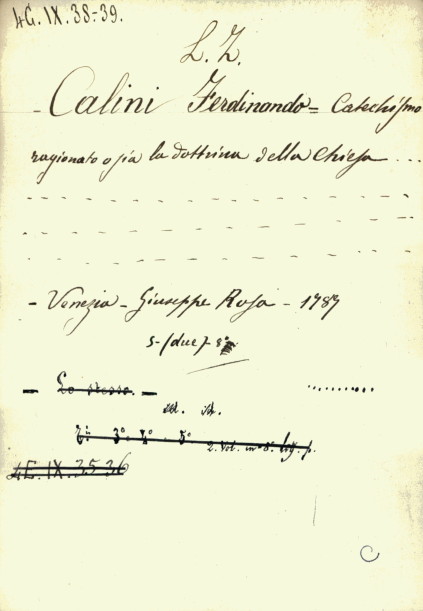 4G. IX. 38-39.
L. Z.
- Calini Ferdinando = Catechismo
ragionato o sia la dottrina della Chiesa ...
- Venezia - Giuseppe Rosa - 1787
5-(due)- 8°
- Lo stesso. - .........
id. id.
3° 4° 5° 2. Vol. in-8.
4G. IX. 35-36
C